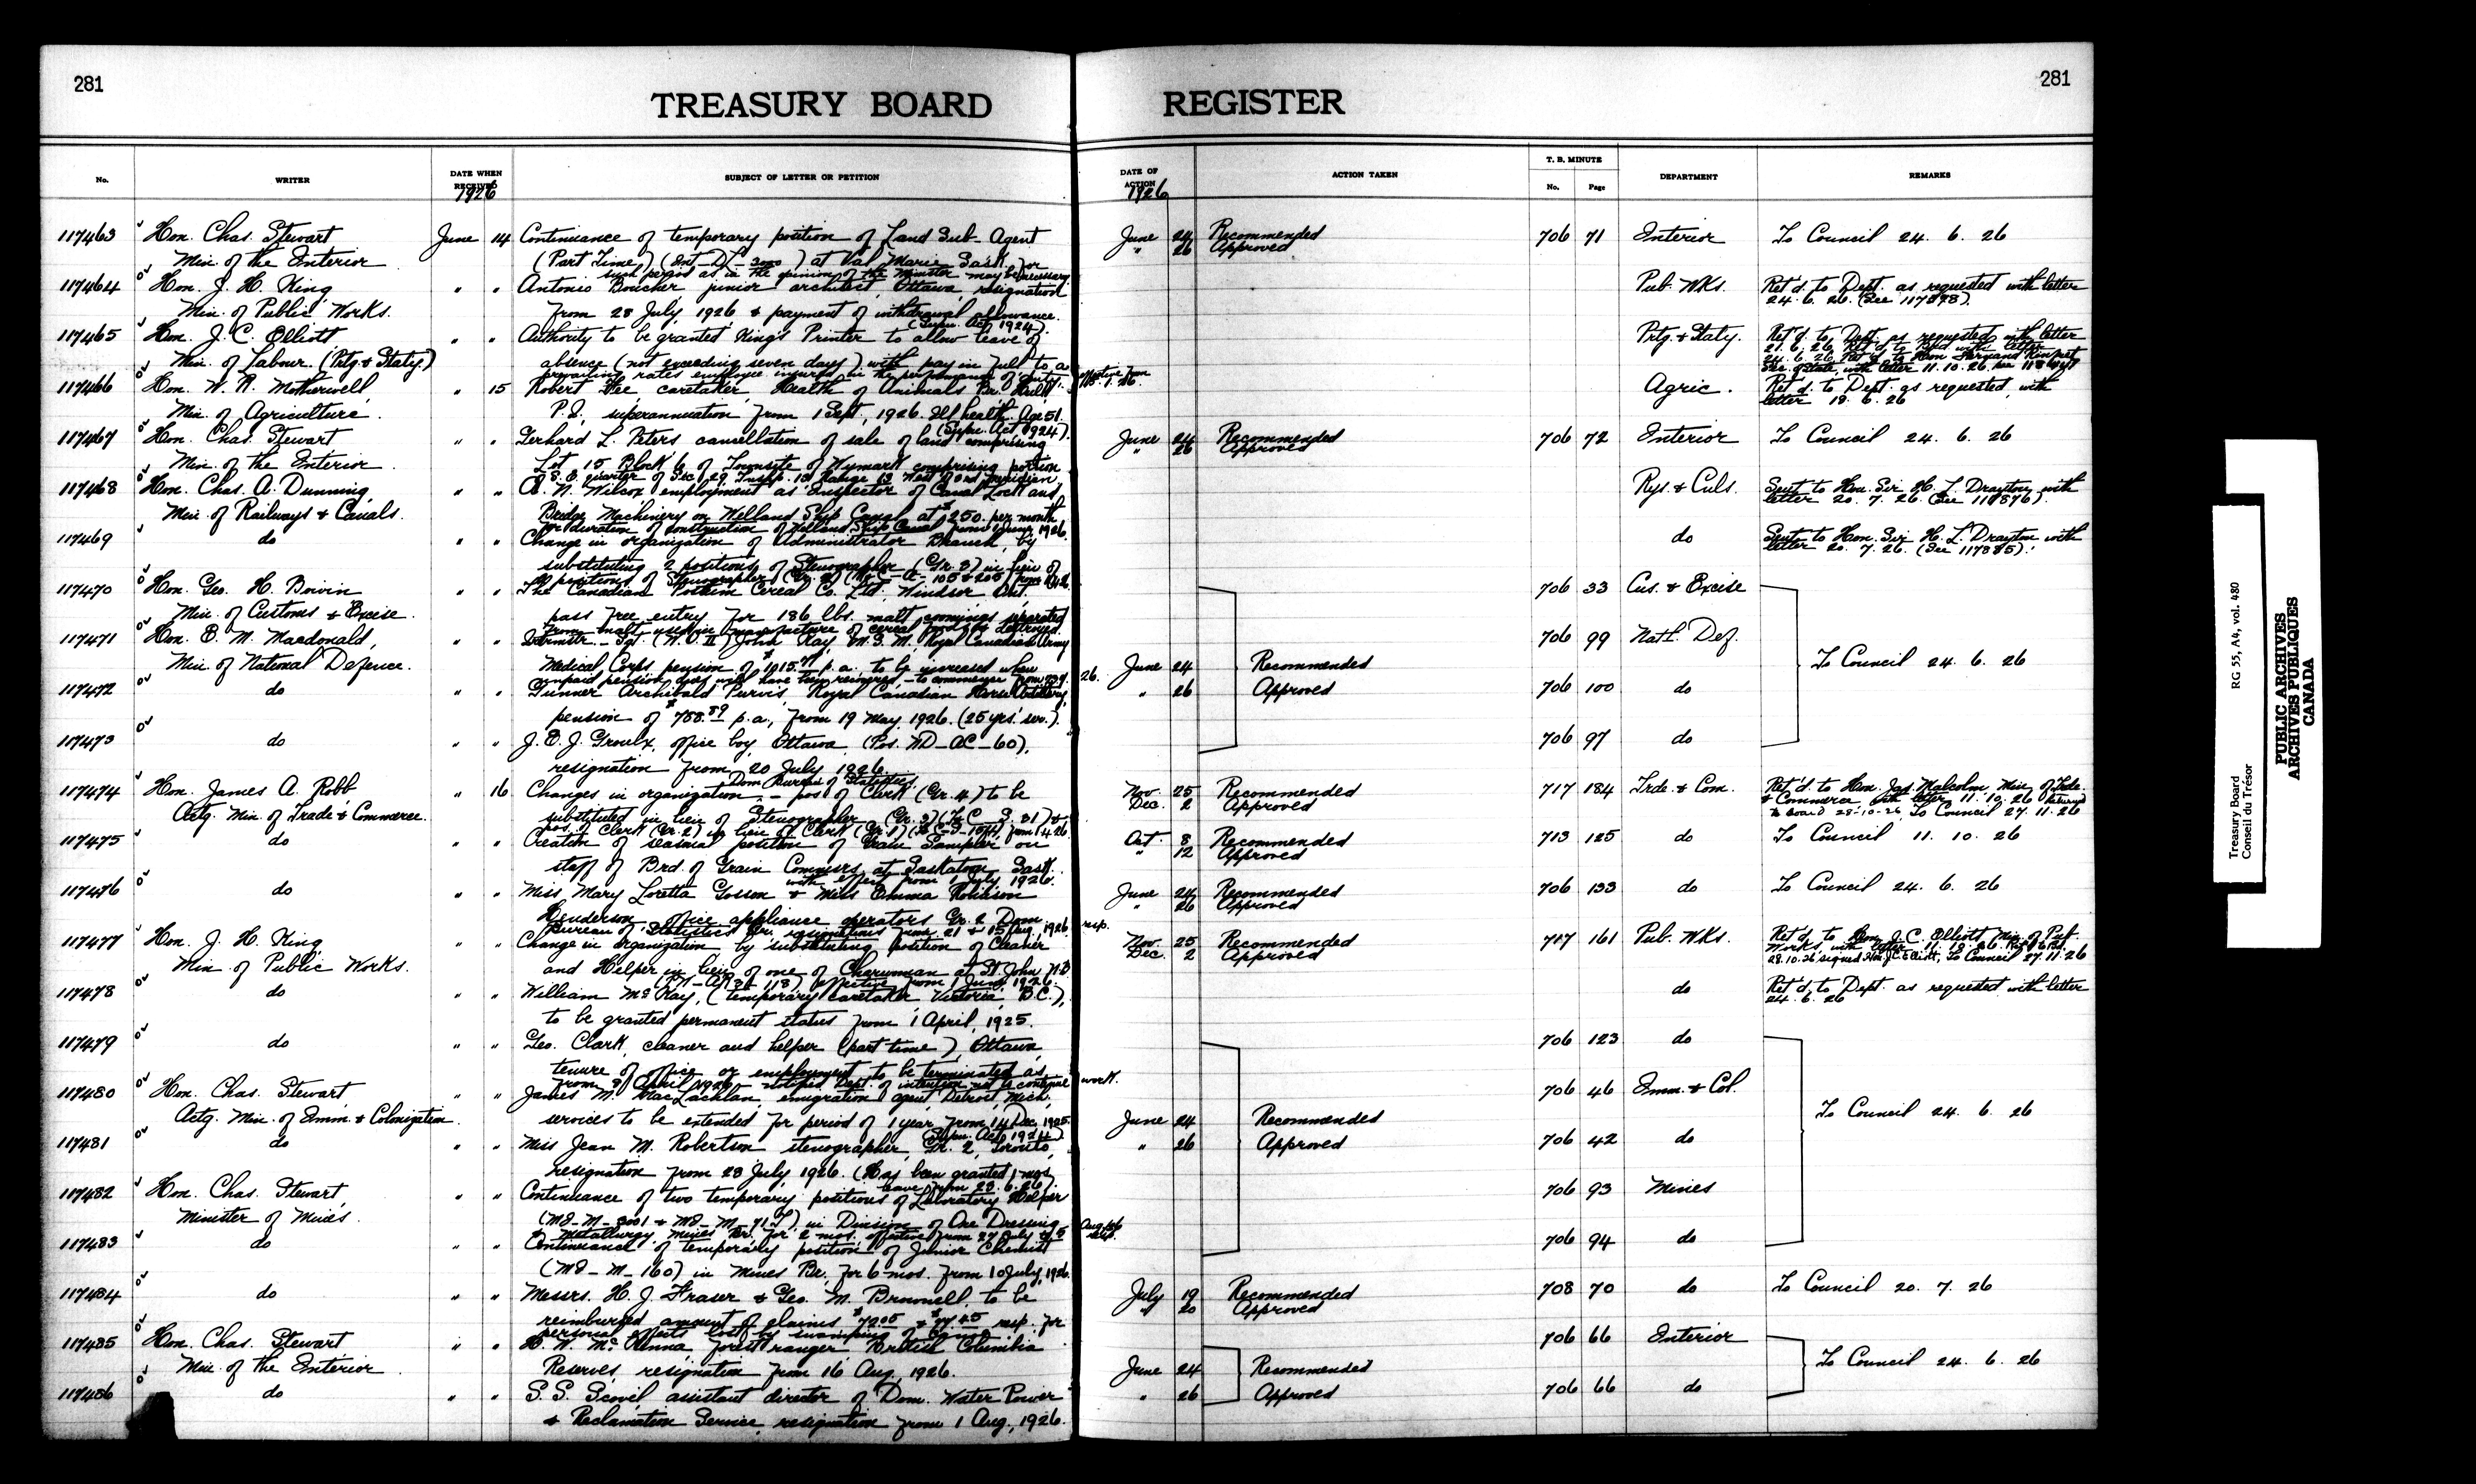 281
281
TREASURY BOARD REGISTER
No. WRITER DATE WHEN RECEIVED SUBJECT OF LETTER OR PETITION DATE OF ACTION ACTION TAKEN T. B. MINUTE No. Page DEPARTMENT REMARKS
1926 1926
117463 Hon. Chas. Stewart June 14 Continuance of temporary position of Land Sub-Agent June 24 Recommended 706 71 Interior To Council 24. 6. 26
Min. of the Interior (Part Time) at Val Marie Sask. for " 26 Approved
such period as in the opinion of the Minister may be necessary
117464 Hon. J. H. King " " Antonio Boucher junior architect, Ottawa, resignation Pub. Wks. Ret'd. to Dept. as requested with letter
Min. of Public Works. from 28 July, 1926 & payment of withdrawal allowance. 24. 6. 26.
(Supn. Act, 1924).
117465 Hon. J. C. Elliott " " Authority to be granted King's Printer to allow leave of Prtg. & Staty. Ret'd. to Dept. as requested with letter
Min. of Labour. (Prtg. & Staty.) absence (not exceeding seven days) with pay in full to
prevailing rates employee injured in the performance of duty.
117466 Hon. W. R. Motherwell " 15 Robert Fee, caretaker, Health of Animals Br. Agric. Ret'd. to Dept. as requested, with
Min. of Agriculture. superannuation from 1 Sept., 1926. Ill health. Age 51. letter 18. 6. 26
(Supn. Act 1924).
117467 Hon. Chas. Stewart " " Gerhard L. Peters cancellation of sale of land comprising June 24 Recommended 706 72 Interior To Council 24. 6. 26
Min. of the Interior. Lot 15 Block 6 of Townsite of Wymark comprising portion " 26 Approved
117468 Hon. Chas. A. Dunning, " " Wilcox employment as Inspector of Canal Lock and Rys. & Cnls. Sent to Hon. Sir H. L. Drayton, with
Min. of Railways & Canals. Bridge Machinery on Welland Ship Canal at $250. per month letter 20. 7. 26.
for duration of construction of Welland Ship Canal
117469 do " " Change in organization of Administrator Branch, by do Sent to Hon. Sir H. L. Drayton with
substituting 2 positions of Stenographer (Gr. 3) in lieu of letter 20. 7. 26.
117470 Hon. Geo. H. Boivin " " The Canadian Cereal Co. Ltd. Windsor Ont. 706 33 Cus. & Excise
Min. of Customs & Excise. pass free entry for 186 lbs. malt
117471 Hon. E. M. Macdonald, " " John Ray, M.S.M., Royal Canadian Army 706 99 Nat'l. Def.
Min. of National Defence. Medical Corps pension of p.a. to be increased when June 24 Recommended To Council 24. 6. 26
117472 do " " Gunner Archibald Purvis, Royal Canadian " 26 Approved 706 100 do
pension of $758.89 p.a., from 19 May, 1926. (25 yrs. ser.).
117473 do " " J. E. J. Groulx, office boy, Ottawa. (Pos. ND-AC-60), 706 97 do
resignation from 20 July 1926
Dom. Bureau of Statistics
117474 Hon. James A. Robb " 16 Changes in organization - pos. of Clerk (Gr. 4) to be Nov. 25 Recommended 717 184 Trde. & Com. Ret'd. to Hon. Jas. Malcolm, Min. of Trde.
Actg. Min. of Trade & Commerce. substituted in lieu of Stenographer (Gr. 3) Dec. 2 Approved & Commerce with letter 11. 10. 26 Returned
to Board 28-10-26. To Council 27. 11. 26
117475 do " " Creation of seasonal position of Grain Sampler on Oct. 8 Recommended 713 125 do To Council 11. 10. 26
staff of Brd. of Grain Commsrs. at Saskatoon Sask. " 12 Approved
with effect from 1 July, 1926.
117476 do " " Miss Mary Loretta Gosson & Miss Emma Robinson June 24 Recommended 706 133 do To Council 24. 6. 26
Henderson, office appliance operators Gr. 2 Dom. " 26 Approved
Bureau of Statistics resignations June 21 & 15 Aug., 1926 resp.
117477 Hon. J. H. King " " Change in organization by substituting position of Cleaner Nov. 25 Recommended 717 161 Pub. Wks. Ret'd. to Hon. J. C. Elliott Min. of Pub.
Min. of Public Works. and Helper in lieu of one of Charwoman at St. John N.B. Dec. 2 Approved Works, with letter 11. 10. 26
28.10.26 signed Hon. J. C. Elliott, To Council 27. 11. 26
117478 do " " William McKay, (temporary caretaker Victoria, B.C.), do Ret'd. to Dept. as requested with letter
to be granted permanent status from 1 April, 1925. 24. 6. 26
117479 do " " Geo. Clark, cleaner and helper (part time), Ottawa, 706 123 do
tenure of office or employment to be terminated as
from April 1926 - notified Dept. of intention not to continue work.
117480 Hon. Chas. Stewart " " James M. MacLachlan, emigration agent, Detroit, Mich. 706 46 Imm. & Col.
Actg. Min. of Imm. & Colonization. services to be extended for period of 1 year from 14 Dec. 1925. June 24 Recommended To Council 24. 6. 26
(Supn. Act, 1924)
117481 do " " Miss Jean M. Robertson, stenographer, Gr. 2, Toronto, " 26 Approved 706 42 do
resignation from 28 July, 1926. (Has been granted 1 mos.
leave from 28. 6. 26).
117482 Hon. Chas. Stewart, " " Continuance of two temporary positions of Laboratory Helper 706 93 Mines
Minister of Mines. in Division of Ore Dressing
& Metallurgy, Mines Br. for 2 mos. effective from 27 July & 5 Aug. 1926 resp.
117483 do " " Continuance of temporary position of Junior Chemist 706 94 do
(MI-M-160) in Mines Br. for 6 mos. from 10 July, 1926.
117484 do " " Messrs. H. J. Fraser & Geo. M. Brownell to be July 19 Recommended 708 70 do To Council 20. 7. 26
reimbursed amount of claims resp. for " 20 Approved
personal effects lost by swamping of canoe
117485 Hon. Chas. Stewart " " McKenna forest ranger British Columbia 706 66 Interior
Min. of the Interior. Reserves, resignation from 16 Aug., 1926. June 24 Recommended To Council 24. 6. 26
117486 do " " S. S. Scovil assistant director of Dom. Water Power " 26 Approved 706 66 do
& Reclamation Service, resignation from 1 Aug., 1926.
RG 55, A4, vol. 480
Treasury Board
Conseil du Trésor
PUBLIC ARCHIVES
ARCHIVES PUBLIQUES
CANADA